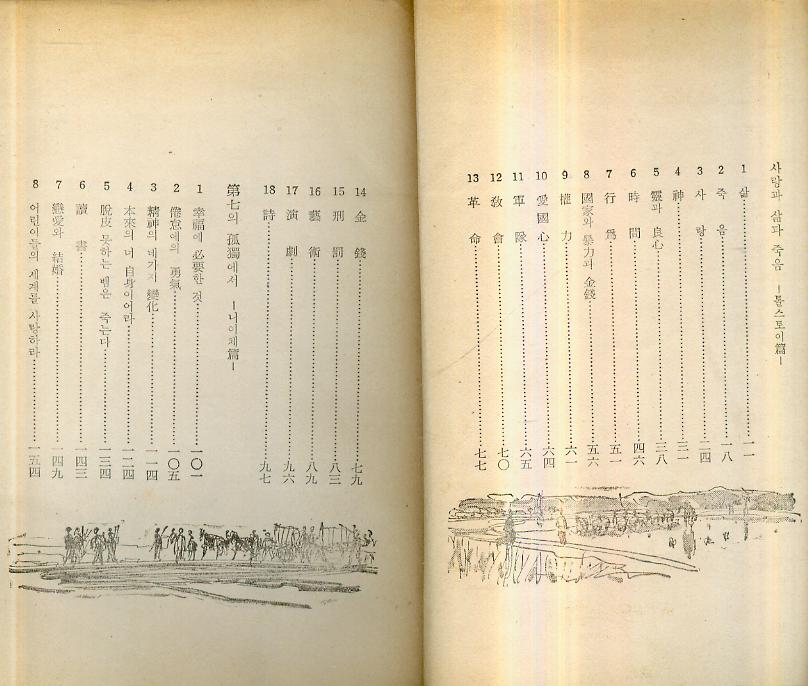 사랑과 삶과 죽음 ―톨스토이篇―
1 삶 一一
2 죽음 一八
3 사랑 二四
4 神 三一
5 靈과 良心 三八
6 時間 四六
7 行爲 五一
8 國家와 暴力과 金錢 五六
9 權力 六一
10 愛國心 六四
11 軍隊 六五
12 敎會 七〇
13 革命 七七
14 金錢 七九
15 刑罰 八三
16 藝術 八九
17 演劇 九六
18 詩 九七
第七의 孤獨에서 ―니이체篇―
1 幸福에 必要한 것 一〇一
2 倦怠에의 勇氣 一〇五
3 精神의 네가지 變化 一一四
4 本來의 너 自身이어라 一二四
5 脫皮 못하는 뱀은 죽는다 一三四
6 讀書 一四三
7 戀愛와 結婚 一四九
8 어린이들의 세계를 사랑하라 一五四